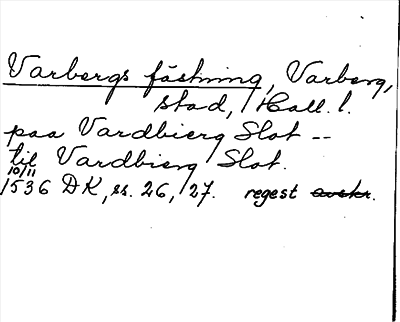 Varbergs fästning, Varberg,
stad, Hall. l.
paa Vardbierg Slot --
til Vardbierg Slot.
10/11
1536 DK, ss. 26, 27. regest avskr.